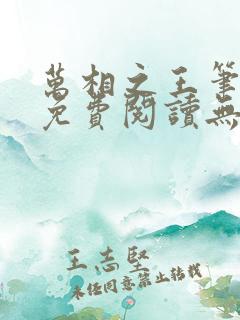 萬相之王筆
免費閱讀無
王志堅
未經同意禁止轉載